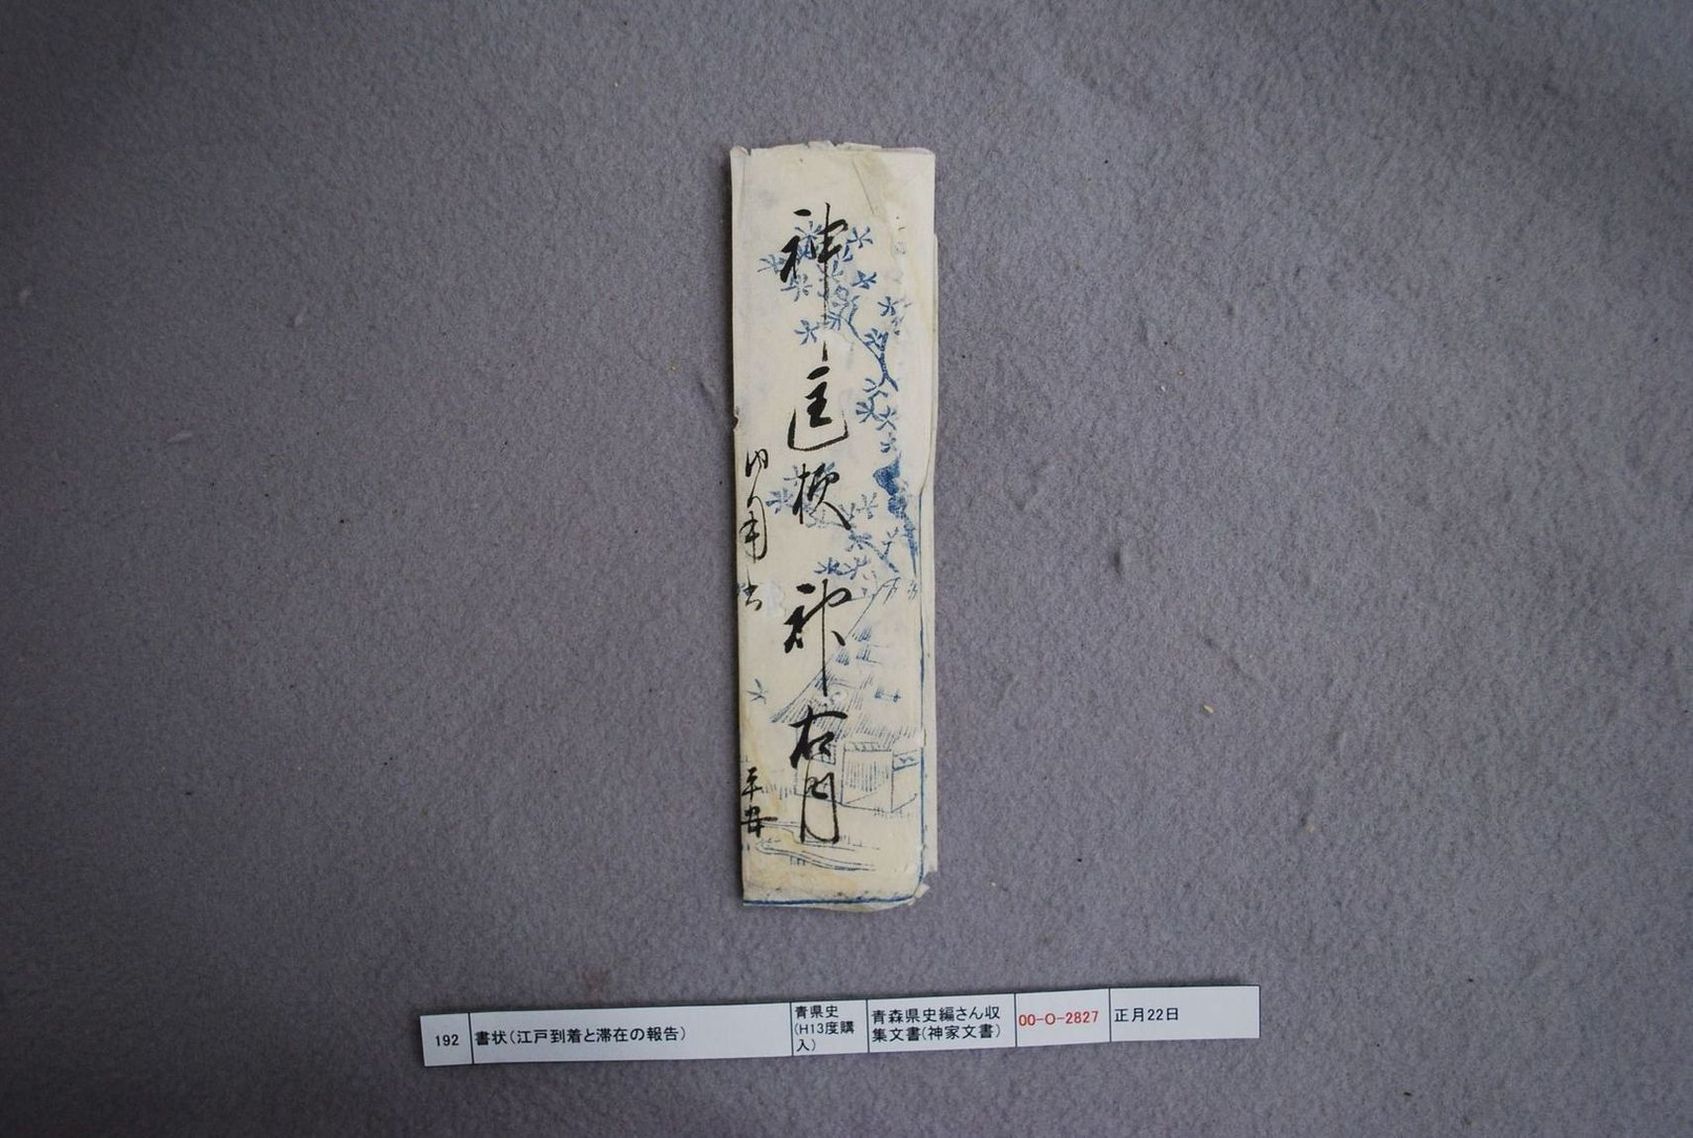 神 匡梗 神右門
平安
192
書状(江戸到着と滞在の報告)
青県史
(H13度購
入)
青森県史編さん収
集文書(神家文書)
00-O-2827
正月22日